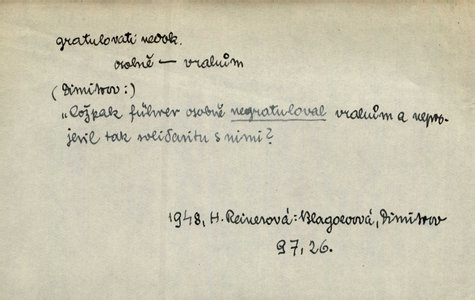 gratulovati nedok.
osobně — vrahům
(Dimitrov:)
„Což pak führer osobně negratuloval vrahům a nepro-
jevil tak solidaritu s nimi?
1948, H. Reinerová: Blagoevová, Dimitrov
97, 26.